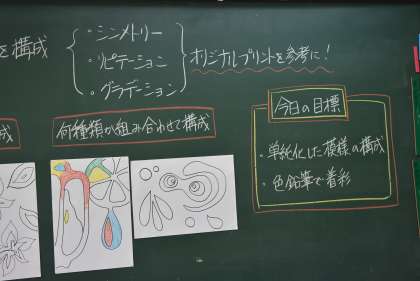 を構成
・シンメトリー
・リピテーション
・グラデーション
オリジナルプリントを参考に!
成
何種類か組み合わせて構成
今日の目標
・単純化した模様の構成
・色鉛筆で着彩